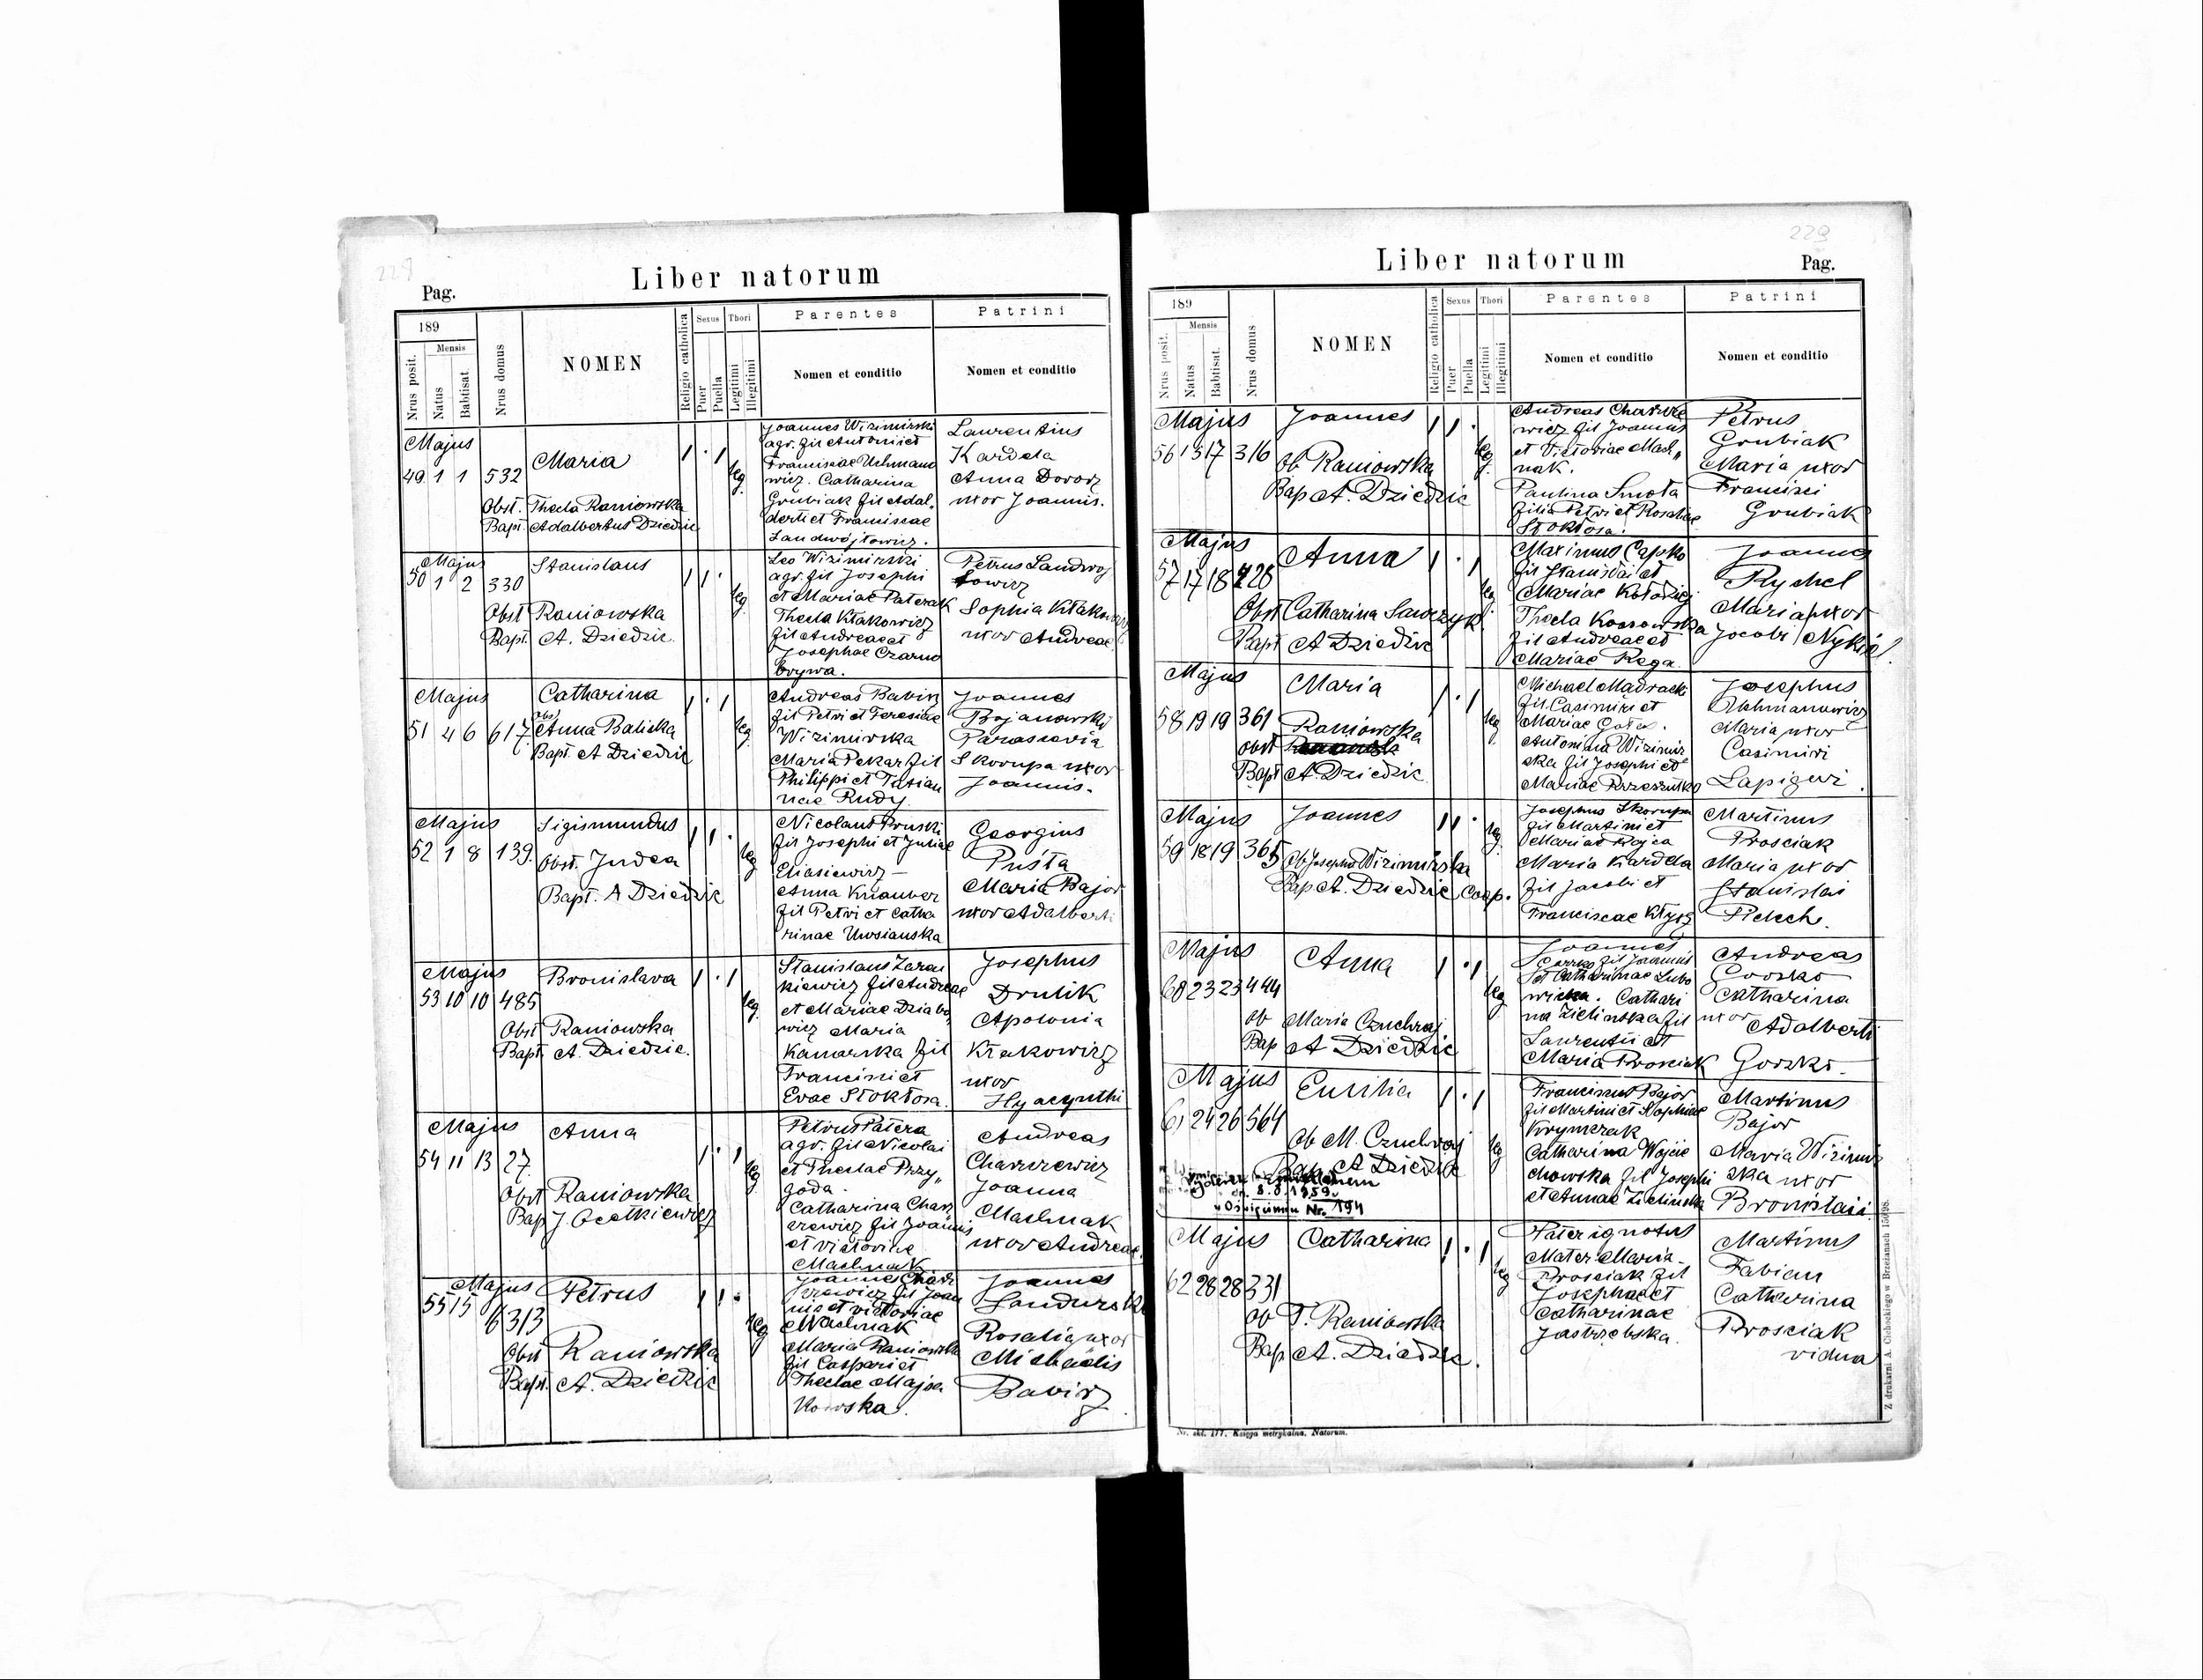 229
Liber natorum
Pag.
189
Mensis
Nrus posit.
Natus
Babtisat.
Nrus domus
NOMEN
Religio catholica
Sexus
Puer
Puella
Thori
Legitimi
Illegitimi
Parentes
Nomen et conditio
Patrini
Nomen et conditio
Majus
49 1 1 532
Maria
1 . 1
leg.
Obst. Thecla Raniowska
Bapt. Adalbertus Dziedzic
Joannes Wizimirski
agr. fil Antoni et
Franciscae Uchmano
wicz. Catharina
Grubiak fil Adal
berti et Franciscae
Landwójtowicz.
Laurentius
Kardela
Anna Dororz
uxor Joannis.
Majus
50 1 2 330
Stanislaus
1 1 .
leg.
Obst Raniowska
Bapt. A. Dziedzic.
Leo Wizimirski
agr. fil Josephi
et Mariae Paterak
Thecla Kłakowicz
fil Andreae et
Josephae Czarno
brywa.
Petrus Landwoj
towicz
Sophia Kłakowicz
uxor Andreae
Majus
51 4 6 617.
Catharina
1 . 1
leg.
obs
Anna Baliska
Bapt. A Dziedzic
Andreas Babirz
fil Petri et Teresiae
Wizimirska
Maria Pekar fil
Philippi et Tatian
nae Rudy.
Joannes
Bojanowski
Parascevia
Skorupa uxor
Joannis.
Majus
52 1 8 139.
Sigismundus
1 1 .
leg
Obst. Judea
Bapt. A Dziedzic
Nicolaus Pruski
fil Josephi et Juliae
Eliasiewicz
Anna Knauber
fil Petri et Catha
rinae Uwsianska
Georgius
Pusta
Maria Bajor
uxor Adalberti
Majus
53 10 10 485
Bronislava
1 . 1
leg.
Obst Raniowska
Bapt. A. Dziedzic.
Stanislaus Zaran
kiewicz fil Andreae
et Mariae Dziabo
wicz Maria
Kanarska fil
Francisci et
Evae Stokłosa.
Josephus
Drulik
Apolonia
Krakowicz
uxor
Hyacynthi
Majus
54 11 13 27.
Anna
1 . 1
leg.
Obst Raniowska
Bap J Ocetkiewicz
Petrus Patera
agr. fil Nicolai
et Theclae Przy„
goda.
Catharina Charz
erewicz fil Joannis
et Victoriae
Machnak
Andreas
Charzrewicz
Joanna
Machnak
uxor Andreae.
Majus
55 15 16 313
Petrus
1 1 .
leg
Obst Raniowska
Bapt. A. Dziedzic
Joannes Charz
rewicz fil Joan
nis et Victoriae
Machnak
Maria Raniowska
fil Caspari et
Theclae Majda
kowska.
Joannes
Sandurski
Rosalia uxor
Michaelis
Babirz
229
Liber natorum
Pag.
189
Mensis
Nrus posit.
Natus
Babtisat.
Nrus domus
NOMEN
Religio catholica
Sexus
Puer
Puella
Thori
Legitimi
Illegitimi
Parentes
Nomen et conditio
Patrini
Nomen et conditio
Majus
56 15 17 316
Joannes
1 1 .
leg.
Ob Raniowska
Bap A. Dziedzic
Andreas Charzre
wicz fil Joannis
et Victoriae Mach„
nak.
Paulina Smota
filia Petri et Rosaliae
Stokłosa.
Petrus
Grubiak
Maria uxor
Francisci
Grubiak
Majus
57 17 18 428
Anna
1 . 1
leg.
Obst Catharina Sawczyk.
Bapt A Dziedzic
Maximus Capko
fil Stanislai et
Mariae Kołodziej
Thecla Kossowska
fil Andreae et
Mariae Rega.
Joannes
Rychel
Maria uxor
Jacobi Nykiel.
Majus
58 19 19 361
Maria
1 . 1
leg.
Raniowska
obst
Bapt A. Dziedzic
Michael Madrack
fil. Casimiri et
Mariae Gałca.
Antonina Wizimir
ska fil Josephi et
Mariae Przeszutko
Josephus
Uchmanowicz
Maria uxor
Casimiri
Łapigwi.
Majus
59 18 19 365
Joannes
1 1 .
leg.
Ob Josepha Wizimirska
Bap A. Dziedzic Coop.
Josephus Skorupa
fil Martini et
Mariae Rojca
Maria Kardela
fil Jacobi et
Franciscae Kłysz
Martinus
Prosciak
Maria uxor
Stanislai
Pielech.
Majus
60 23 23 444
Anna
1 . 1
leg
ob Maria Czuchraj
Bap A Dziedzic
Joannes
Gorzko fil Joannis
et Catharinae Lubo
wicka. Cathari
na Zielinska fil
Laurentii et
Maria Prosciak
Andreas
Gorzko
Catharina
uxor Adalberti
Gorzko.
Majus
61 24 26 564
Emilia
1 . 1
leg
Ob M. Czuchraj
Bap A Dziedzic
8.8.1959.
Nr. 194
Franciscus Bajor
fil Martini et Sophiae
Krymczak
Catharina Wojcie
chowska fil Josephi
et Annae Zielinska
Martinus
Bajor
Maria Wizimir
ska uxor
Bronislai.
Majus
62 28 28 331
Catharina
1 . 1
leg
ob T. Raniowska
Bap A. Dziedzic.
Pater ignotus
Mater Maria
Prosciak fil
Josephae et
Catharinae
Jastrzebska.
Martinus
Fabian
Catharina
Prosciak
vidua
Nr. skl. 177. Księga metrykalna. Natorum.
Z drukarni A. Cichockiego w Brzeżanach 156/98.